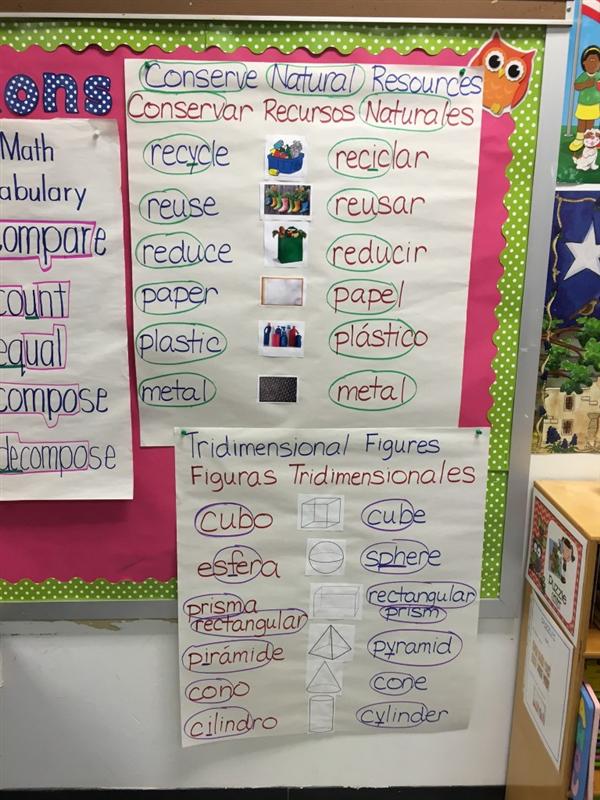 ons
Math
abulary
compare
count
equal
compose
decompose
Conserve Natural Resources
Conservar Recursos Naturales
recycle reciclar
reuse reusar
reduce reducir
paper papel
plastic plástico
metal metal
Tridimensional Figures
Figuras Tridimensionales
cubo cube
esfera sphere
prisma rectangular
rectangular prism
pirámide pyramid
cono cone
cilindro cylinder
PUZZLE